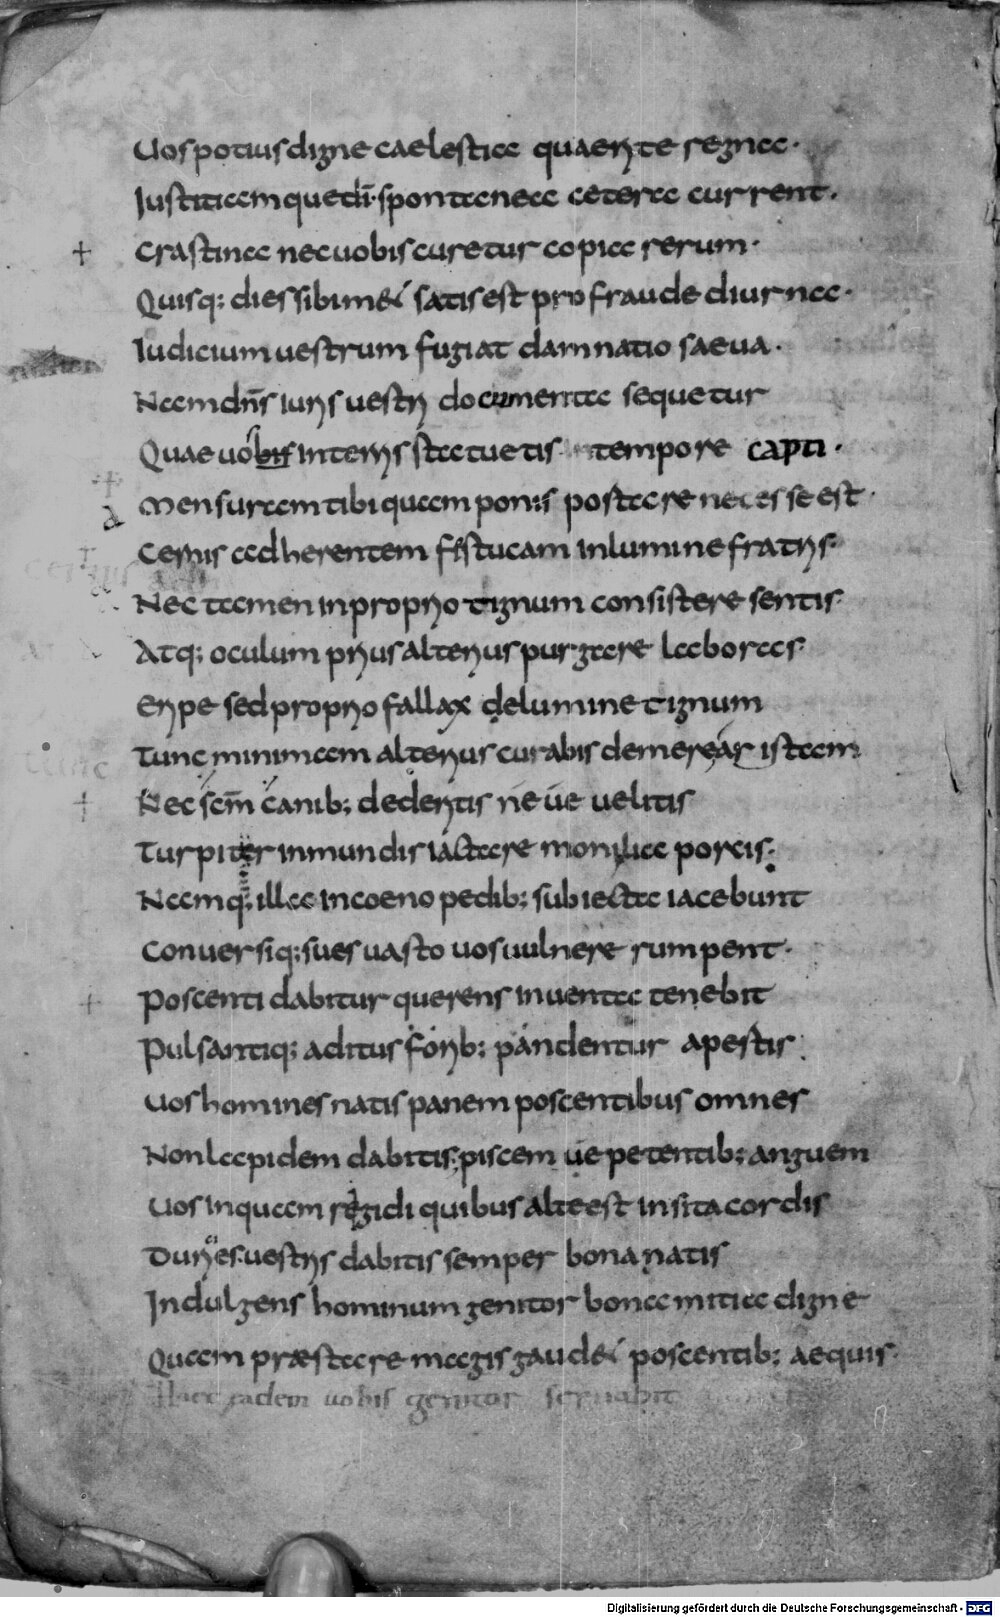 Uos potius digne caelestia quaerite regna·
Iustitiamque dī· spontanea cetera current·
+ Crastina nec uobis curetur copia rerum·
Quisq; dies sibimet satis est pro fraude diurna·
Iudicium uestrum fugiat damnatio saeua·
Nam dn̄s iuris uestri documenta sequetur
Quae uobis in terris statuetis tempore capti·
Mensuram tibi quam ponis postare necesse est·
Cernis adherentem festucam in lumine fratris·
Nec tamen in proprio tignum consistere sentis·
Atq; oculum prius alterius purgare laboras·
Eripe sed proprio fallax de lumine tignum
Tunc minimam alterius curabis demere aristam
+ Nec scm̄ canib; dederitis neue uelitis
Turpiter inmundis iactare monilia porcis;
Namq; illa in coeno pedib; subiecta iacebunt
Conuersiq; sues uasto uos uulnere rumpent·
+ Poscenti dabitur querens inuenta tenebit
Pulsantiq; aditus forib; pandentur apestis;
Uos homines natis panem poscentibus omnes
Non lapidem dabitis; piscem ue petentib; anguem
Uos inquam regidi quibus alte est insita cordis
Duries uestris dabitis semper bona natis
Indulgens hominum genitor bona mitia digne
Quam præstare magis gaudet poscentib; aequis·
Haec eadem uobis genitor seruabit
Digitalisierung gefördert durch die Deutsche Forschungsgemeinschaft - DFG